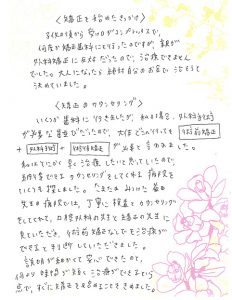 〈矯正を始めたきっかけ〉
子供の頃から受け口がコンプレックスで、
何度か矯正歯科にも行ったのですが、親が
外科矯正に反対だったので、治療できません
でした。大人になったら絶対自分のお金で治そうと
決めていました。
〈矯正のカウンセリング〉
いくつか歯科に行きましたが、私の場合、外科手術
が必要な歯並びだったので、大体どこへ行っても 術前矯正
+ 外科手術 + 術後矯正 が必要と言われました。
私はとにかく早く治療したいと思っていたので、
納得できるカウンセリングをしてくれる病院を
いくつも探しました。
先生の病院では、丁寧に検査とカウンセリング
をしてくれて、口腔外科の先生と矯正の先生に
見ていただき、術前矯正なしでも治療が
できると判断していただきました。
説明が細かくて安心できたので、
何より時間が短く治療ができるという
点で、すぐに矯正を始めることをきめました。